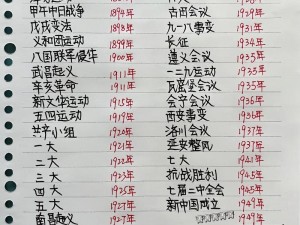 甲午中日战争 1894年 古田会议 1929年
戊戌变法 1898年 九一八事变 1931年
义和团运动 1899年 长征 1934年
八国联军侵华 1900年 遵义会议 1935年
武昌起义 1911年 一二九运动 1935年
辛亥革命 1911年 瓦窑堡会议 1935年
新文华运动 1915年 会宁会议 1936年
五四运动 1919年 西安事变 1936年
共产小组 1920年 洛川会议 1937年
一大 1921年 延安整风
二大 1922年 七大
三大 1923年 抗战胜利 1945年
四大 1925年 七届二中全会 1949年
五大 1927年 新中国成立 1949年
南昌起义 1927年 1949年